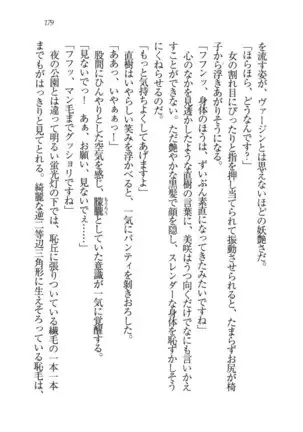 179
を流す姿が、ヴァージンとは思えないほどの妖艶さだ。
「ほらほら、どうです」
女の割れ目にぴったりと指を押し当てられて振動させられると、たまらずお尻が椅
子から浮きあがってしまう。
「フフンッ、身体のほうは、ずいぶん素直になってきたみたいですね」
心のなかを見透かしたような直樹の言葉に、美咲はうつ向くだけでなにも言いかえ
すことができない。ただ艶やかな黒髪で顔を隠し、スレンダーな身体を恥ずかしそう
にくねらせる。
「もっと気持ちよくしてあげますよ」
直樹はいやらしい笑みを浮かべると、一気にパンティを剝きおろした。
「あっ、いやぁぁっ！」
股間にひんやりとした空気を感じ、朦朧としていた意識が一気に覚醒する。
「見ないでっ！　あぁ、お願い、見ないでぇ……」
「フフッ、マン毛までグッショリですね」
夜の公園とは違って明るい蛍光灯の下では、恥丘に張りついている繊毛の一本一本
までもがはっきりと見てとれる。綺麗な逆二等辺三角形に生えそろっている恥毛は、